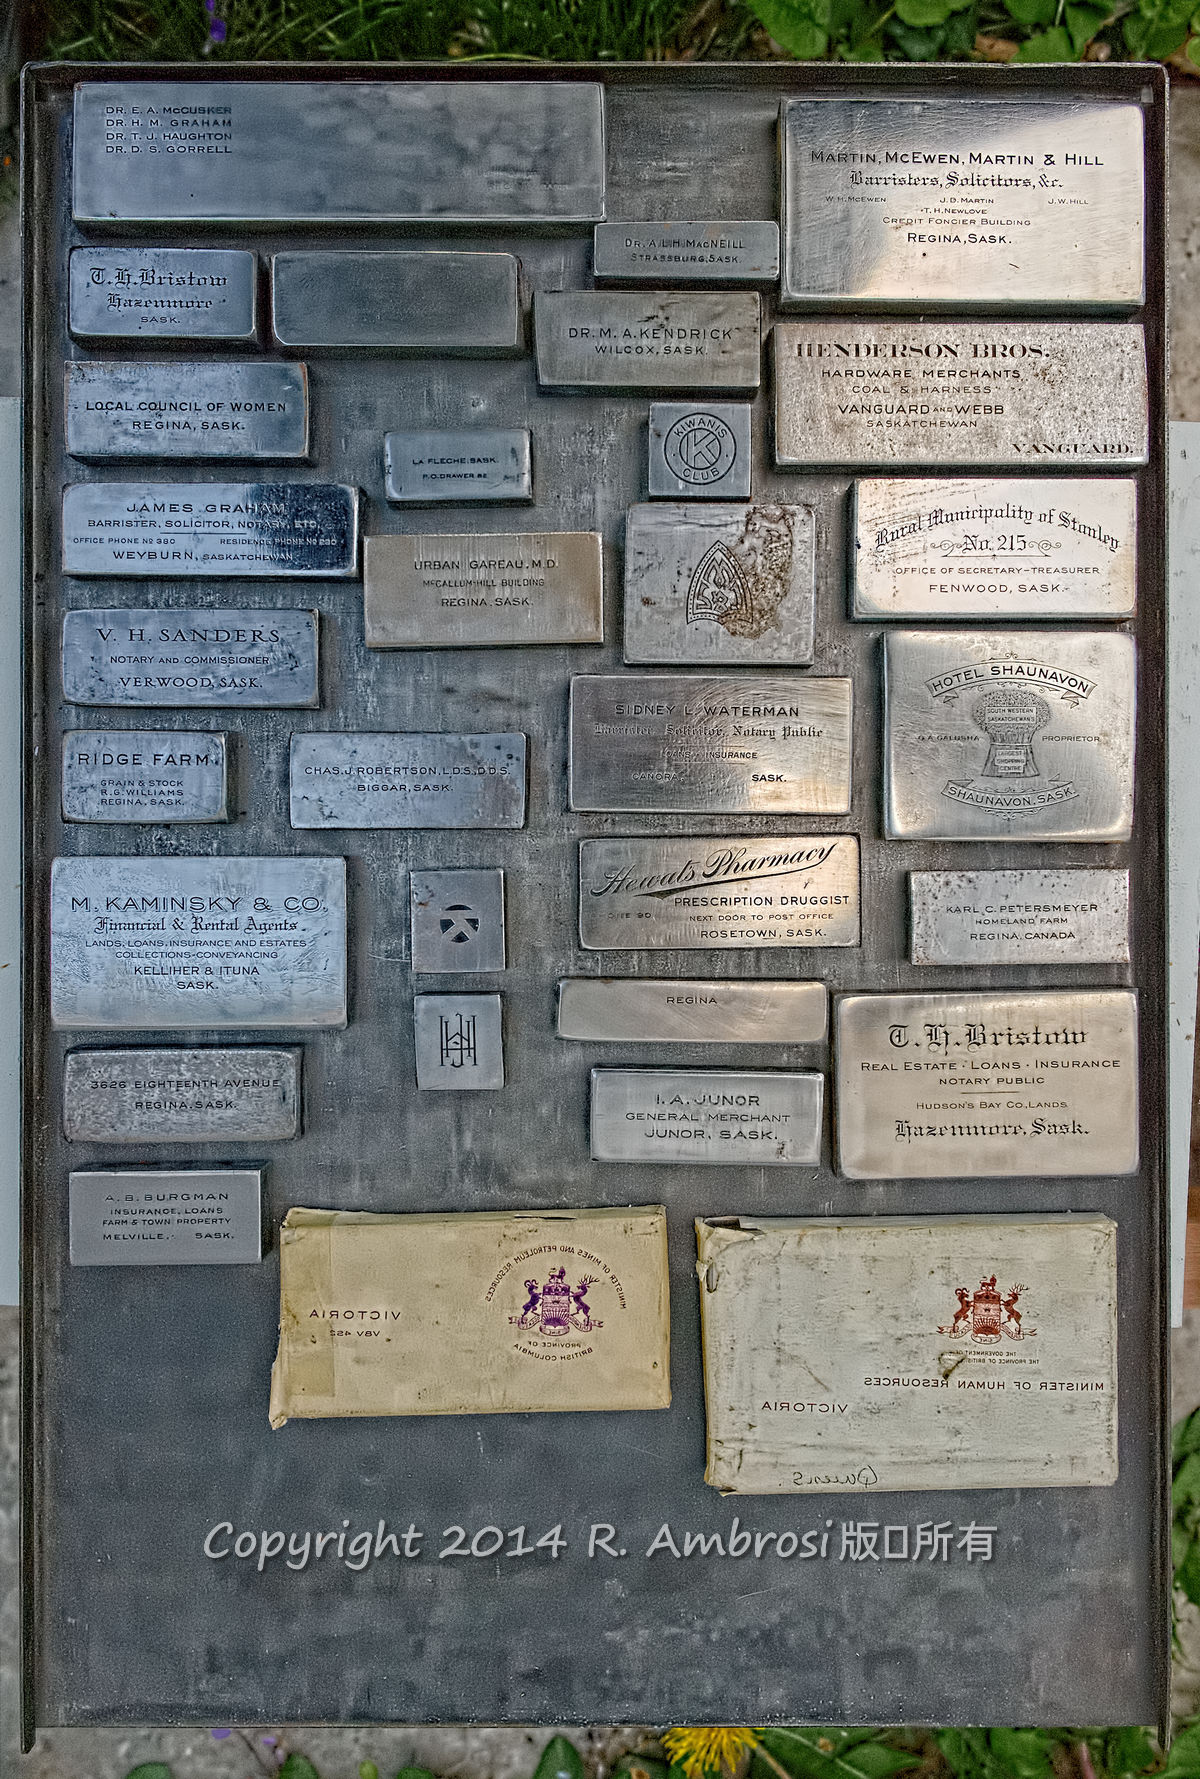 DR. E. A. McCUSKER
DR. H. M. GRAHAM
DR. T. J. HAUGHTON
DR. D. S. GORRELL
MARTIN, MCEWEN, MARTIN & HILL
Barristers, Solicitors, &c.
W. H. MCEWEN J. D. MARTIN J. W. HILL
T. H. NEWLOVE
CREDIT FONCIER BUILDING
REGINA, SASK.
DR. A. L. H. MACNEILL
STRASSBURG, SASK.
T. H. Bristow
Hazenmore
SASK.
DR. M. A. KENDRICK
WILCOX, SASK.
HENDERSON BROS.
HARDWARE MERCHANTS
COAL & HARNESS
VANGUARD AND WEBB
SASKATCHEWAN
VANGUARD,
LOCAL COUNCIL OF WOMEN
REGINA, SASK.
KIWANIS
K
CLUB
LA FLECHE, SASK.
P.O. DRAWER 82
JAMES GRAHAM
BARRISTER, SOLICITOR, NOTARY, ETC.
OFFICE PHONE No 380 RESIDENCE PHONE No
WEYBURN, SASKATCHEWAN
Rural Municipality of Stanley
No. 215
OFFICE OF SECRETARY-TREASURER
FENWOOD, SASK.
URBAN GAREAU, M.D.
MCCALLUM-HILL BUILDING
REGINA, SASK.
V. H. SANDERS
NOTARY AND COMMISSIONER
VERWOOD, SASK.
HOTEL SHAUNAVON
SOUTH WESTERN
SASKATCHEWAN'S
G. A. GALUSHA PROPRIETOR
LARGEST
SHOPPING
CENTRE
SHAUNAVON, SASK.
SIDNEY L. WATERMAN
Barrister, Solicitor, Notary Public
LOANS INSURANCE
CANORA, SASK.
RIDGE FARM
GRAIN & STOCK
R. G. WILLIAMS
REGINA, SASK.
CHAS. J. ROBERTSON, L.D.S., D.D.S.
BIGGAR, SASK.
Hewat's Pharmacy
PRESCRIPTION DRUGGIST
90 NEXT DOOR TO POST OFFICE
ROSETOWN, SASK.
M. KAMINSKY & CO.
Financial & Rental Agents
LANDS, LOANS, INSURANCE AND ESTATES
COLLECTIONS-CONVEYANCING
KELLIHER & ITUNA
SASK.
KARL C. PETERSMEYER
HOMELAND FARM
REGINA, CANADA
REGINA
T. H. Bristow
REAL ESTATE · LOANS · INSURANCE
NOTARY PUBLIC
HUDSON'S BAY CO. LANDS
Hazenmore, Sask.
3626 EIGHTEENTH AVENUE
REGINA, SASK.
I. A. JUNOR
GENERAL MERCHANT
JUNOR, SASK.
A. B. BURGMAN
INSURANCE, LOANS
FARM & TOWN PROPERTY
MELVILLE, SASK.
MINISTER OF MINES AND PETROLEUM RESOURCES
PROVINCE OF
BRITISH COLUMBIA
VICTORIA
V8V 4S2
THE GOVERNMENT OF
THE PROVINCE OF BRITISH
MINISTER OF HUMAN RESOURCES
VICTORIA
Copyright 2014 R. Ambrosi版所有